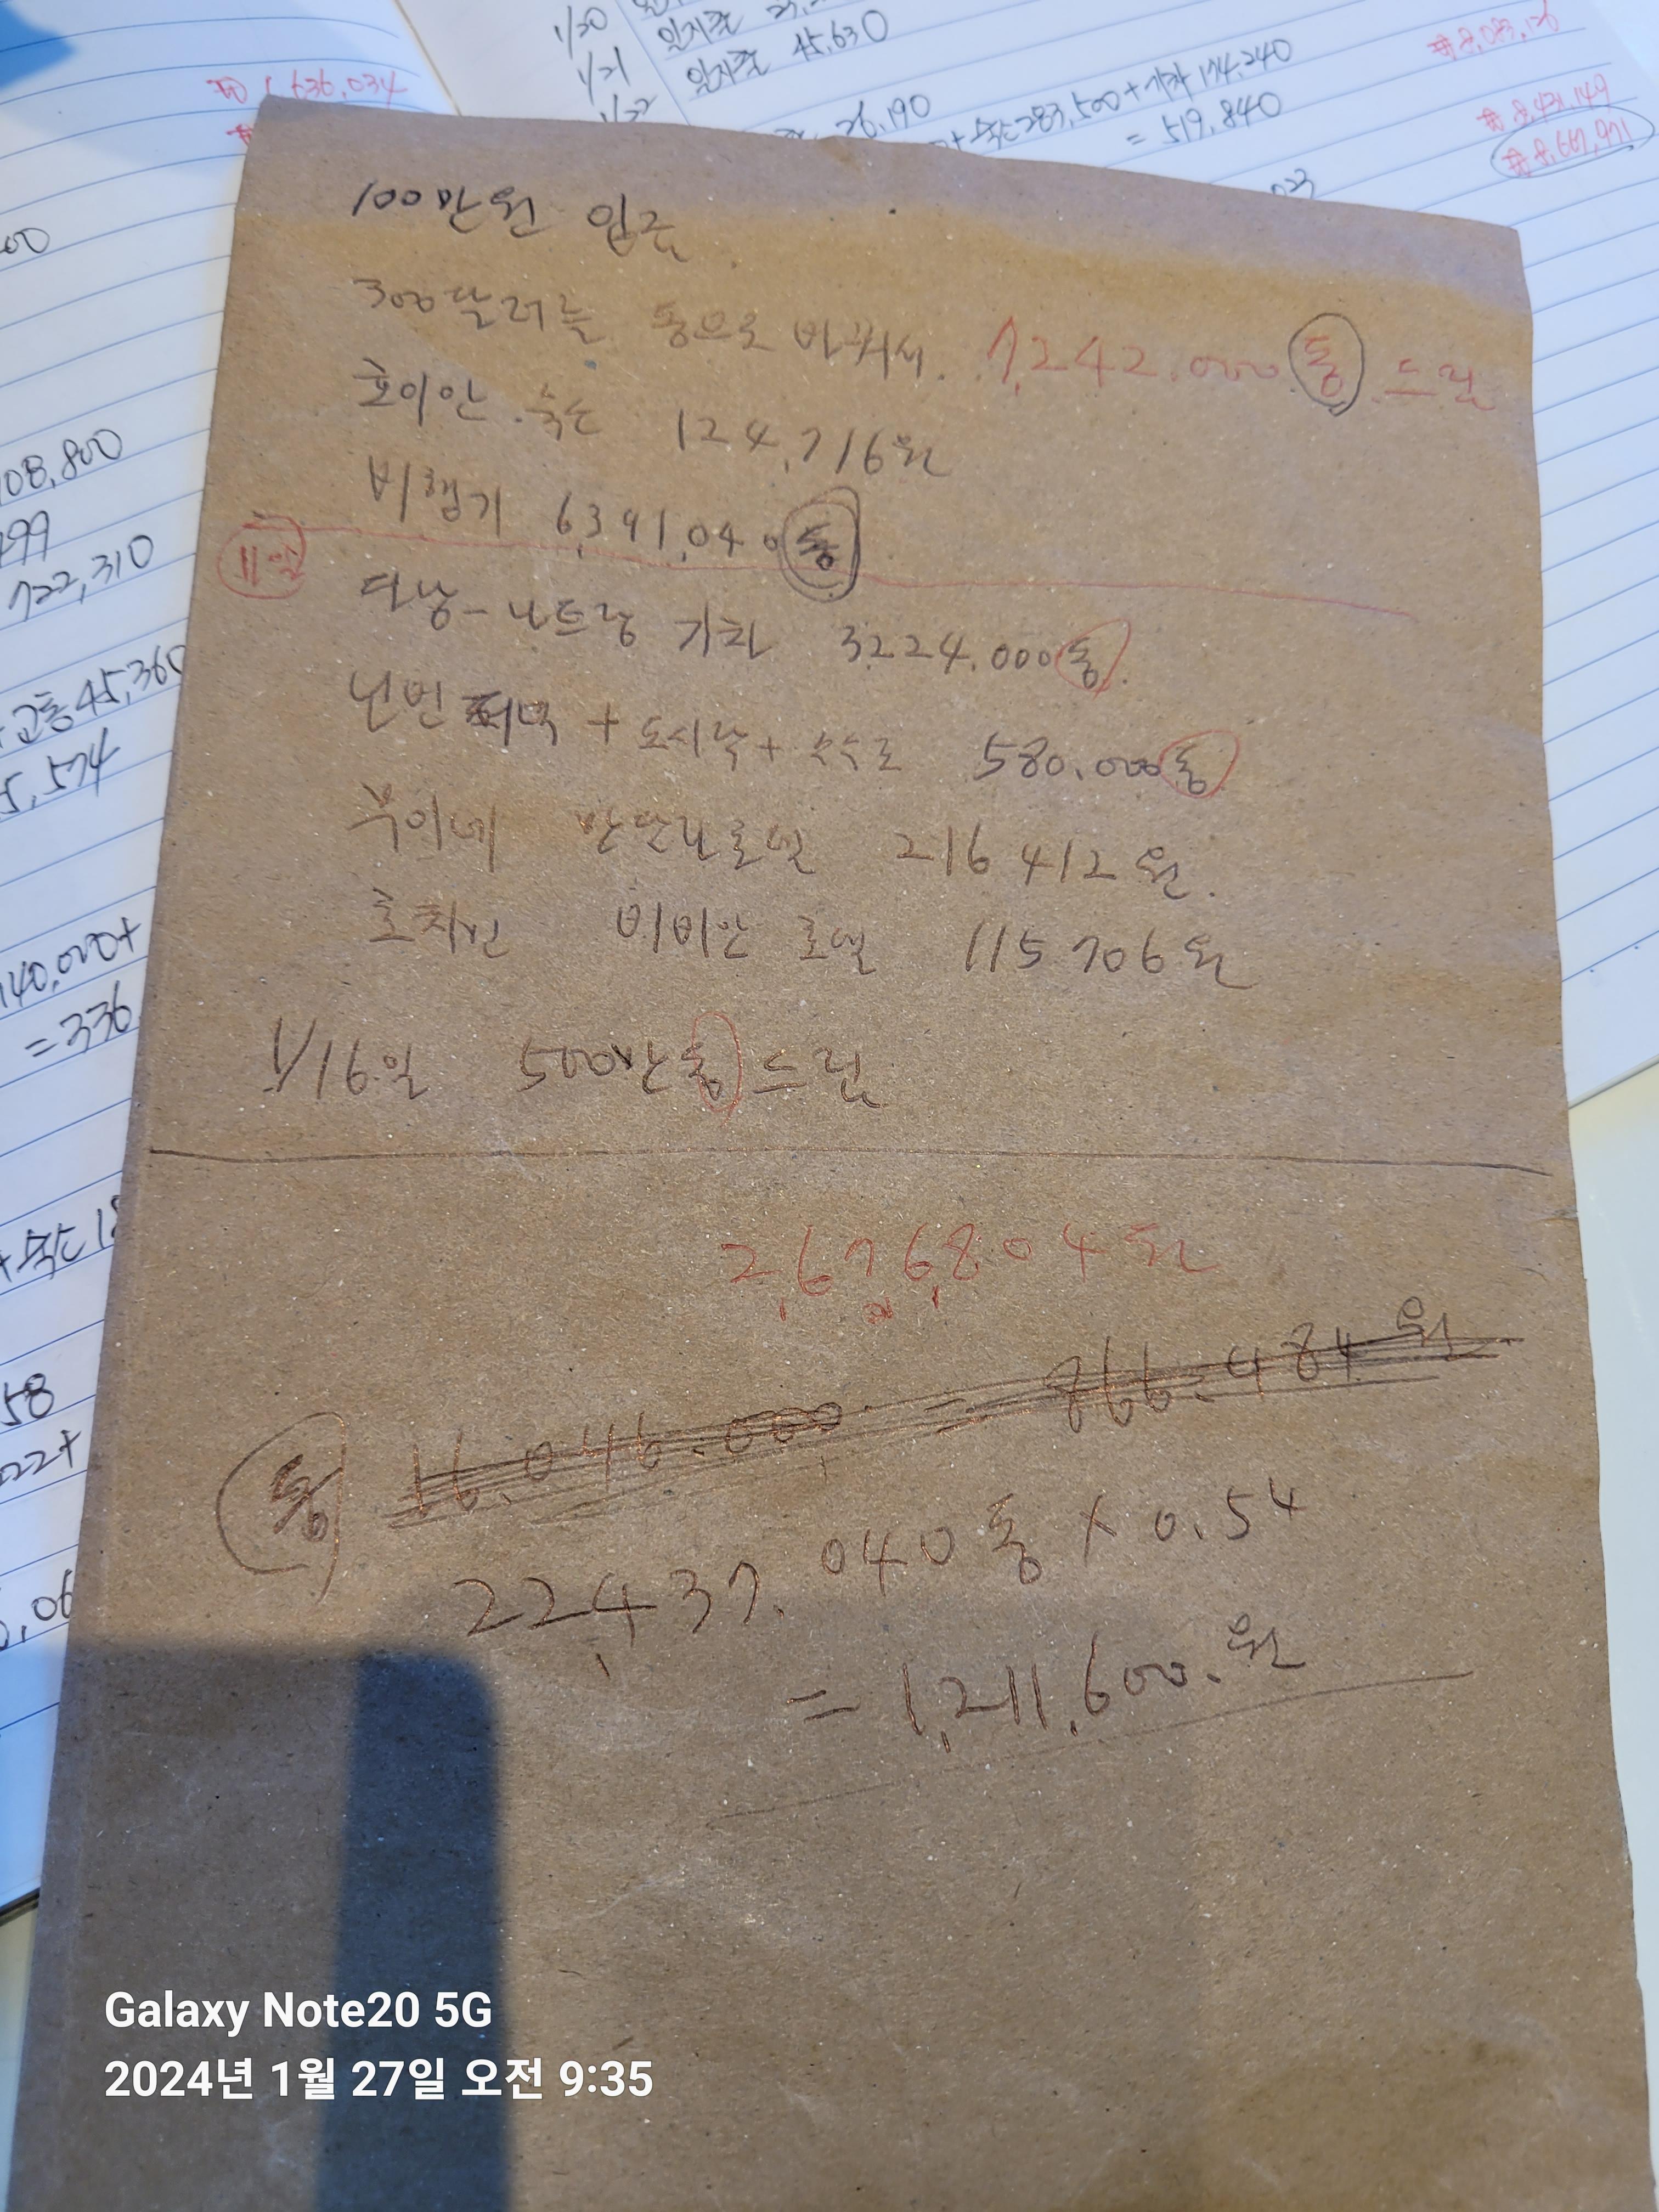 1,636,034
1/20
1/21
일지출 45,630
1/22
26,190
+숙소283,500+기차 174,240
= 519,840
8,083,126
8,431,149
8,667,971
00
108,800
499
722,310
+교통45,360
5,574
140,000+
=336
+숙소 18
58
022+
100만원 입금
300달러를 동으로 바꿔서. 7,242.000 동 드림
호이안. 숙소 124,716원
비행기 6,391,040 동
11일
다낭-나트랑 기차 3224.000동.
닌빈 저녁 + 도시락 + 수수료 580.000동
무이네 만달라호텔 216 412원.
호치민 비비안 호텔 115 706원
1/16일 500만동 드림
2,676,804원
동 16.046.000 = 866.484원
22,437.040동 X 0.54
= 1,211,600.원
Galaxy Note20 5G
2024년 1월 27일 오전 9:35